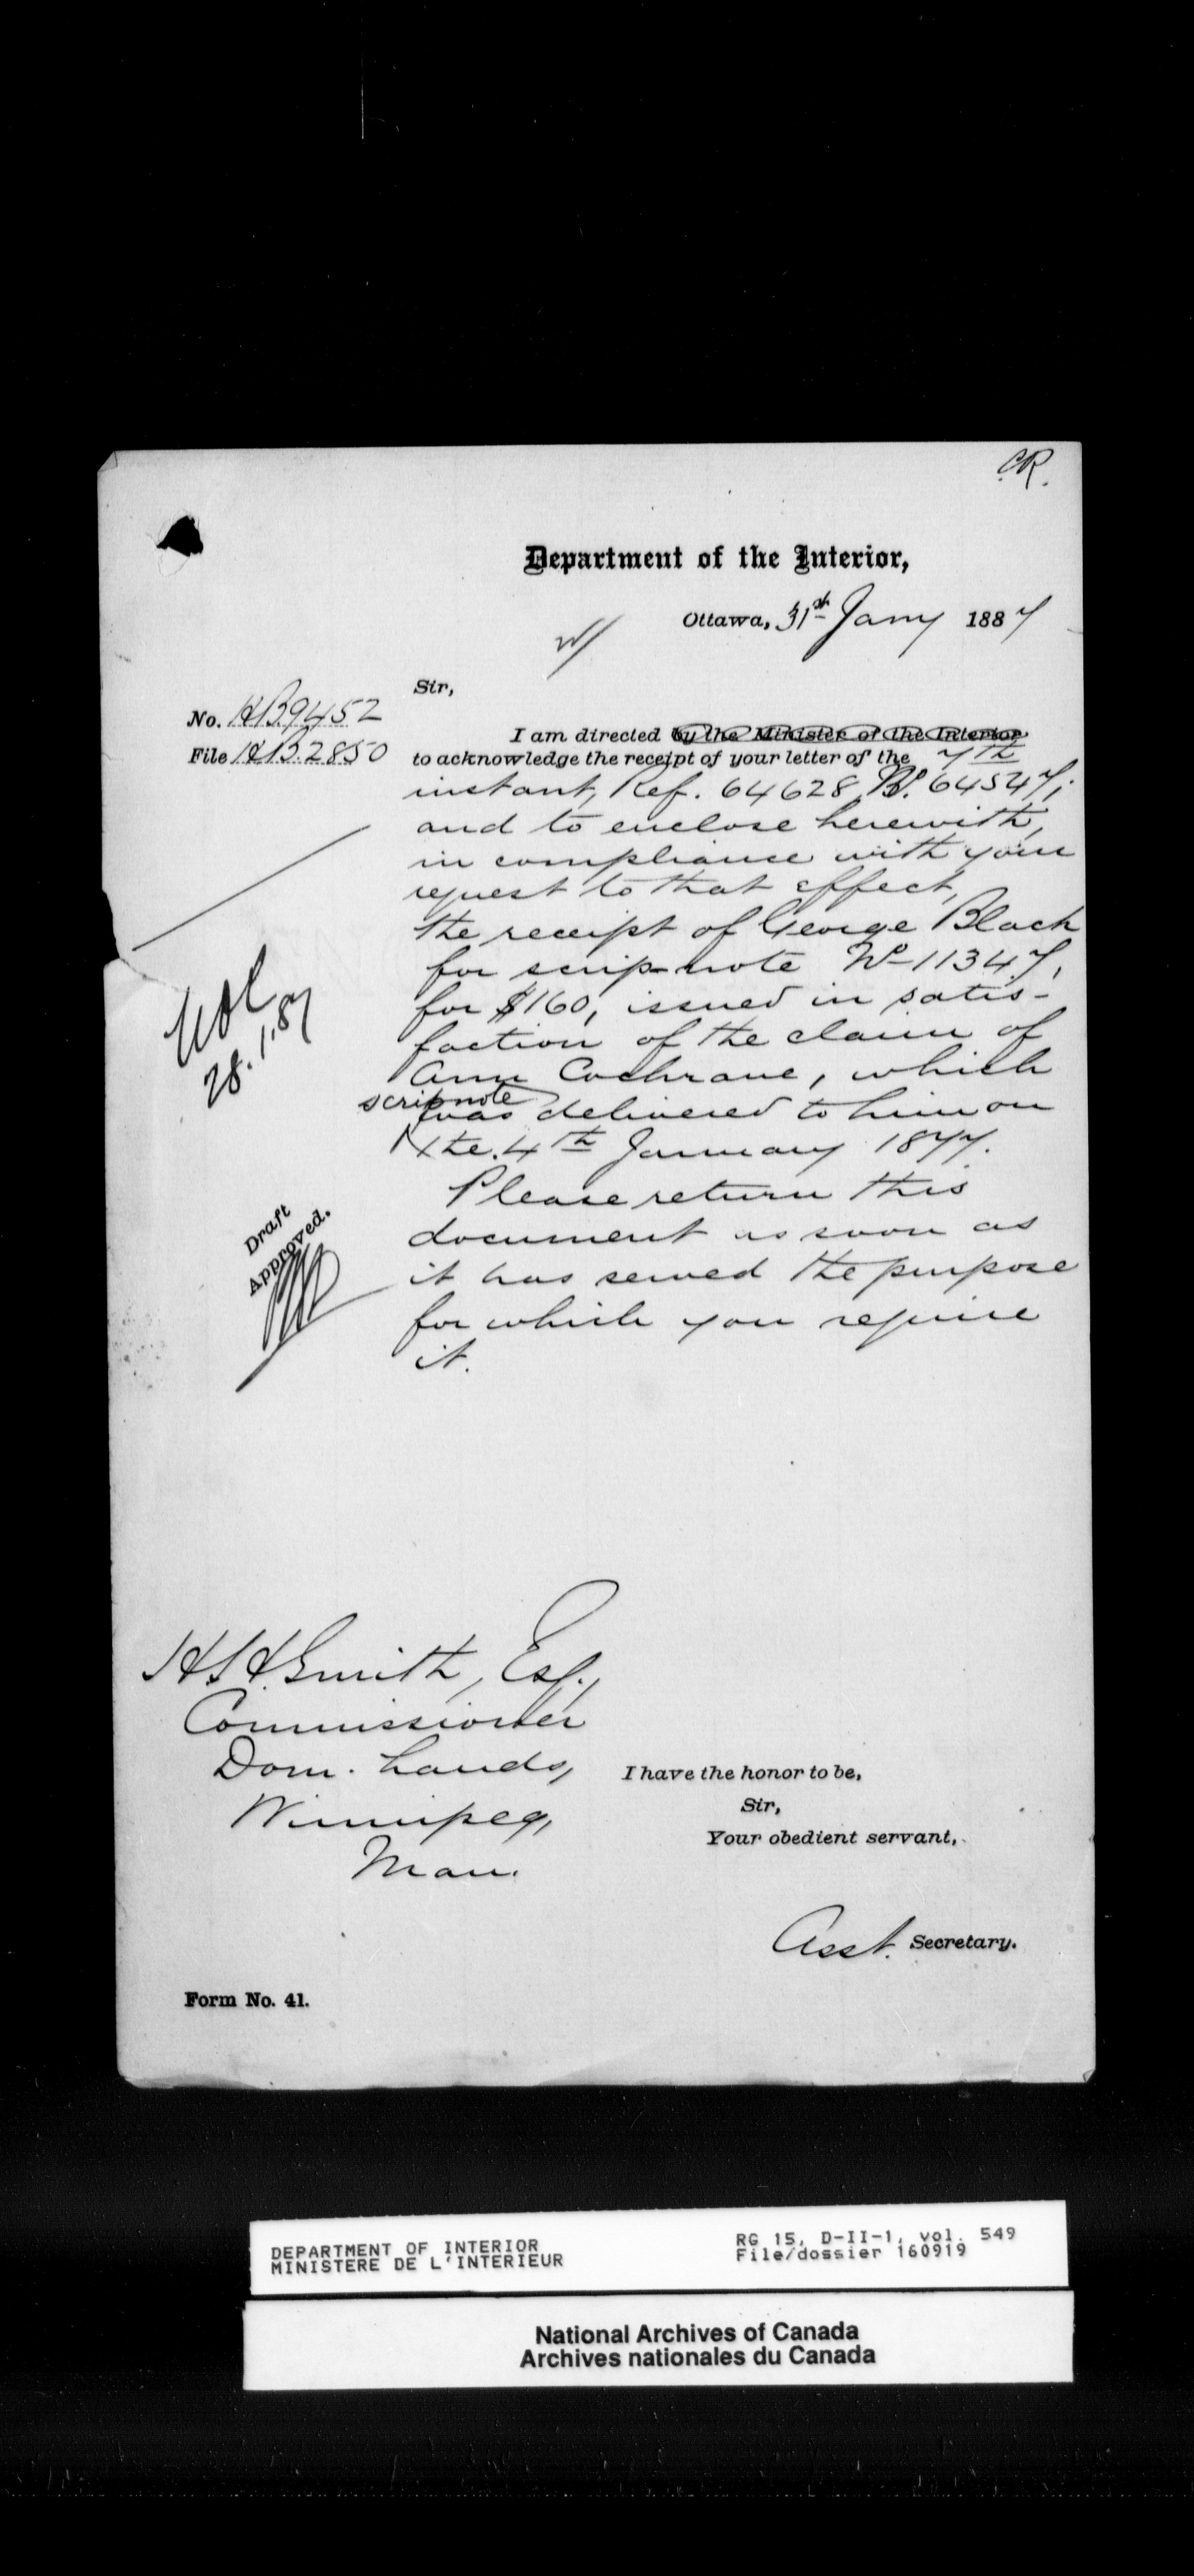 C.R.
Department of the Interior,
Ottawa, 31st Jany 1887
Sir,
No. HB9452
File HB.2850
I am directed by the Minister of the Interior
to acknowledge the receipt of your letter of the 7th
instant, Ref. 64628, 64547;
and to enclose herewith,
in compliance with your
request to that effect,
the receipt of George Black
for scrip note No 11347,
for $160, issued in satis-
faction of the claim of
Ann Cochrane, which
scrip note
was delivered to him on
the 4th January 1877.
Please return this
document as soon as
it has served the purpose
for which you require
it.
28.1.87
Draft
Approved.
H.H. Smith, Esq.,
Commissioner
Dom. Lands,
Winnipeg,
Man.
I have the honor to be,
Sir,
Your obedient servant,
Asst. Secretary.
Form No. 41.
DEPARTMENT OF INTERIOR
MINISTERE DE L'INTERIEUR
RG 15, D-II-1, vol. 549
File/dossier 160919
National Archives of Canada
Archives nationales du Canada